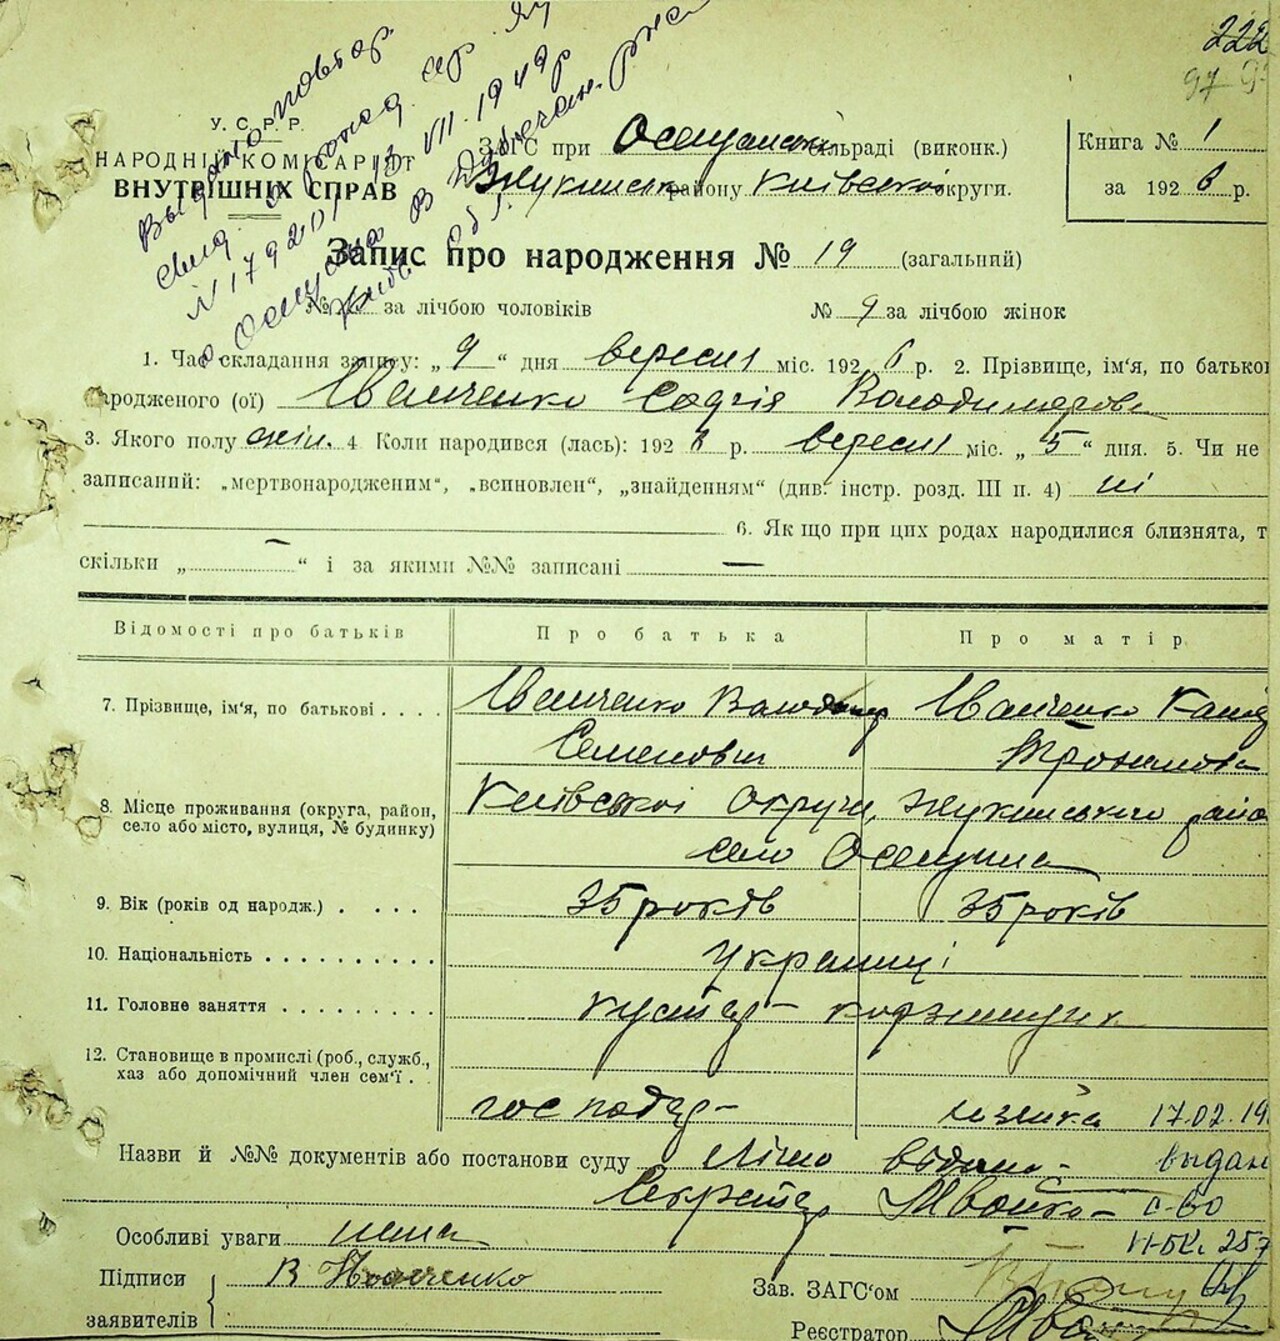 222
97
У. С. Р. Р.
НАРОДНІЙ КОМІСАРІЯТ
ВНУТРІШНІХ СПРАВ
Выдано повтор
свид. о рожд.
VII. 1949р
ЗАГС при Осещанській сільраді (виконк.)
Жукинськ району Київської округи.
Книга № 1
за 1926 р.
Запис про народження № 19 (загальний)
№ за лічбою чоловіків № 9 за лічбою жінок
1. Час складання запису: „ 9 “ дня вересня міс. 1926 р. 2. Прізвище, ім‘я, по батькові
народженого (ої) Іванченко Софія Володимировн
3. Якого полу жін. 4 Коли народився (лась): 1926 р. вересня міс. „ 5 “ дня. 5. Чи не
записаний: „мертвонародженим“, „всиновлен“, „знайденням“ (див. інстр. розд. III п. 4) ні
6. Як що при цих родах народилися близнята, т
скільки „ — “ і за якими №№ записані —
Відомості про батьків Про батька Про матір
7. Прізвище, ім‘я, по батькові . . . . Іванченко Володимир Іванченко
Семенович
8. Місце проживання (округа, район, село або місто, вулиця, № будинку) Київської округи, Жукинського райо
село Осещина
9. Вік (років од народж.) . . . . 35 років 35 років
10. Національність . . . . . . . . . . Українці
11. Головне заняття . . . . . . . . . кустар- корзинщик
12. Становище в промислі (роб., служб., хаз або допомічний член сем‘ї . .
господар- 17.02.19
Назви й №№ документів або постанови суду видано- выдан
Секретар с-во
Особливі уваги нема II-БК. 257
Підписи заявителів В Иванченко
Зав. ЗАГС‘ом
Реєстратор